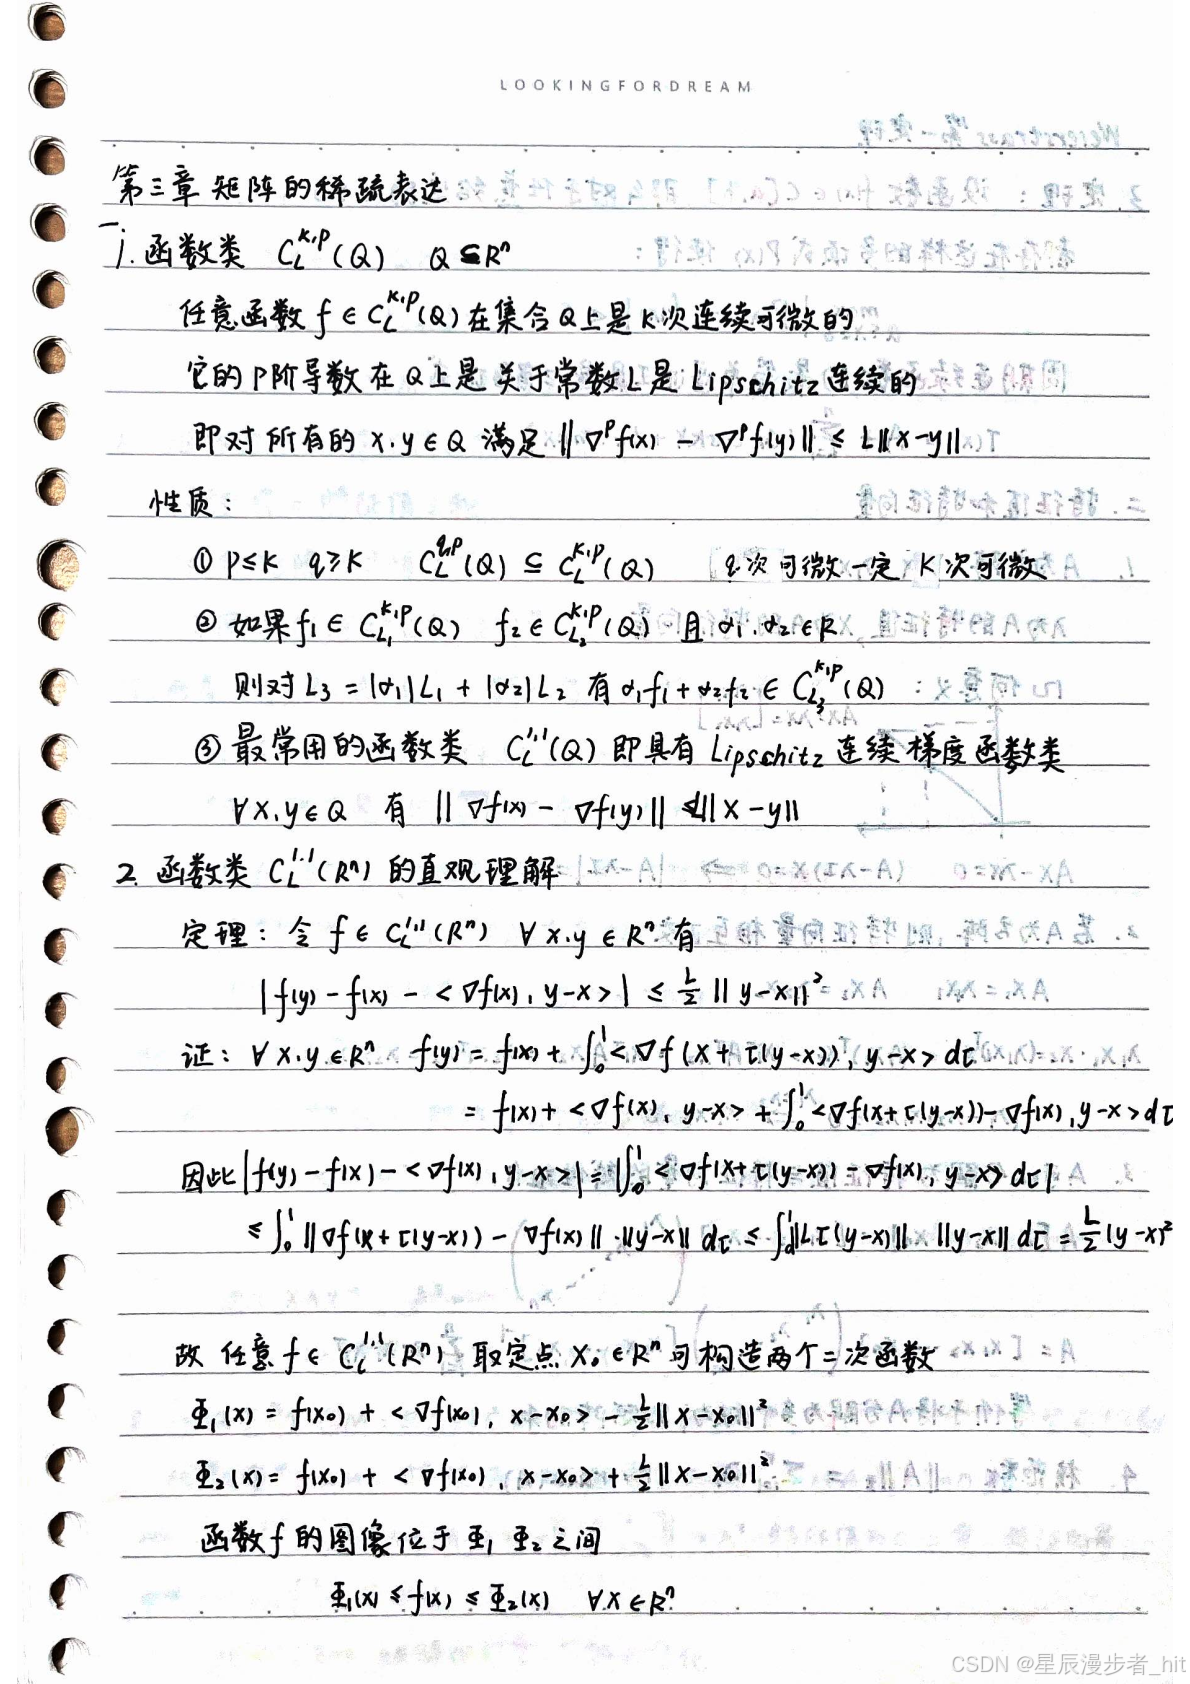 LOOKINGFORDREAM
第三章 矩阵的稀疏表达
一
1. 函数类 C_L^{k,p}(Q) Q⊆R^n
任意函数 f ∈ C_L^{k,p}(Q) 在集合Q上是K次连续可微的
它的P阶导数在Q上是关于常数L是Lipschitz连续的
即对所有的 x.y∈Q 满足 ||∇^p f(x) - ∇^p f(y)|| ≤ L||x-y||
性质:
① p≤k q≥k C_L^{q,p}(Q) ⊆ C_L^{k,p}(Q) q次可微一定K次可微
② 如果f₁∈ C_{L₁}^{k,p}(Q) f₂∈C_{L₂}^{k,p}(Q) 且 α₁.α₂∈R
则对 L₃ = |α₁|L₁ + |α₂|L₂ 有 α₁f₁+α₂f₂ ∈ C_{L₃}^{k,p}(Q)
③ 最常用的函数类 C_L^{1,1}(Q) 即具有Lipschitz连续梯度函数类
∀x,y∈Q 有 ||∇f(x) - ∇f(y)|| ≤L||x-y||
2. 函数类 C_L^{1,1}(R^n) 的直观理解
定理: 令 f∈ C_L^{1,1}(R^n) ∀x.y∈R^n 有
|f(y)-f(x)-<∇f(x), y-x>| ≤ L/2 ||y-x||²
证: ∀x.y∈R^n f(y) = f(x) + ∫₀¹<∇f(x+τ(y-x)), y-x> dτ
= f(x) + <∇f(x), y-x> + ∫₀¹<∇f(x+τ(y-x))-∇f(x), y-x>dτ
因此|f(y)-f(x)-<∇f(x), y-x>| = |∫₀¹<∇f(x+τ(y-x))-∇f(x), y-x> dτ|
≤∫₀¹||∇f(x+τ(y-x)) - ∇f(x)||·||y-x|| dτ ≤ ∫₀¹||Lτ(y-x)||·||y-x|| dτ = L/2 (y-x)²
故 任意 f∈ C_L^{1,1}(R^n) 取定点 x₀∈R^n 可构造两个二次函数
Φ₁(x) = f(x₀) + <∇f(x₀), x-x₀> - L/2||x-x₀||²
Φ₂(x) = f(x₀) + <∇f(x₀), x-x₀> + L/2||x-x₀||²
函数f的图像位于Φ₁ Φ₂之间
Φ₁(x) ≤ f(x) ≤ Φ₂(x) ∀x∈R^n
CSDN @星辰漫步者_hit